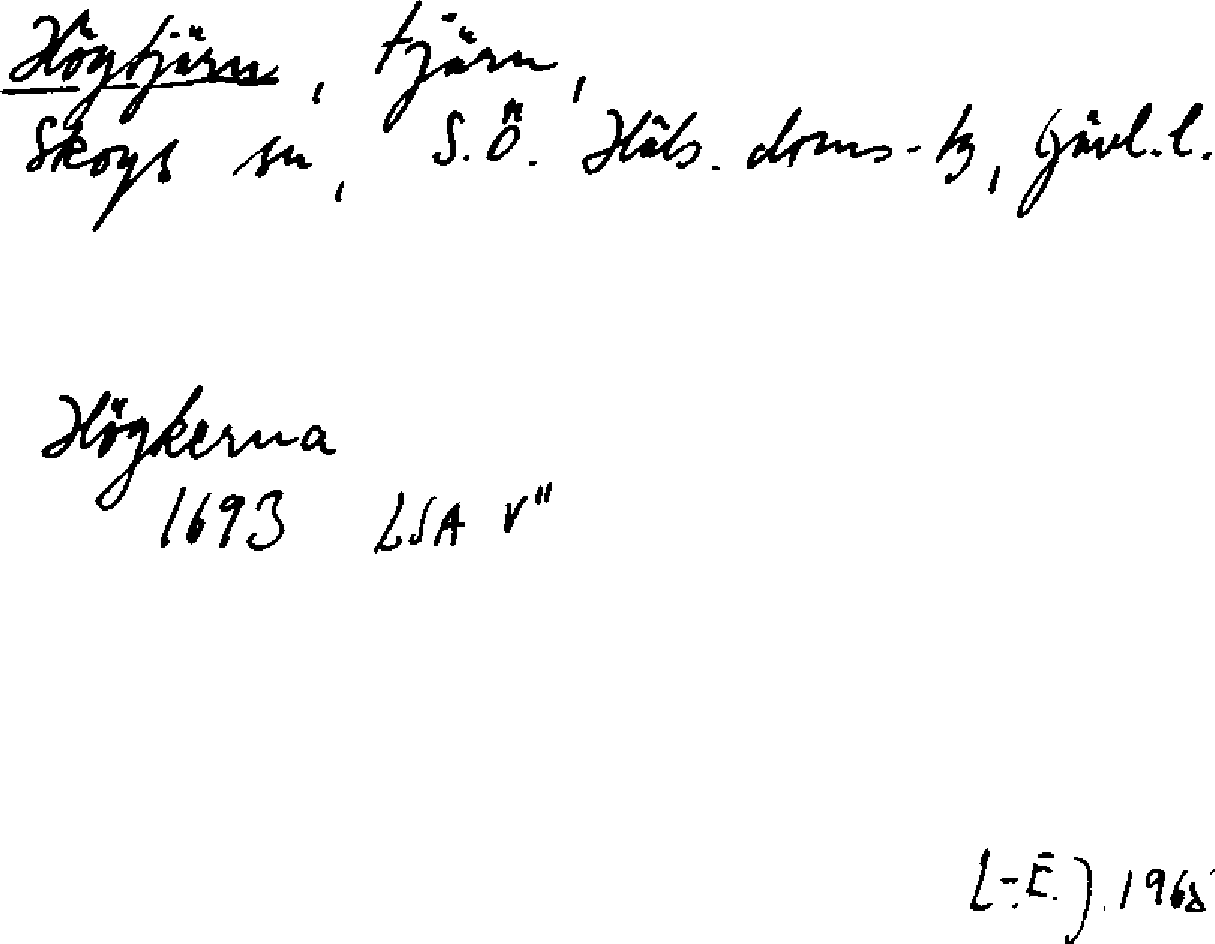 Högtjärn, tjärn,
Skogs sn, S.Ö. Häls. doms-tg, Gävl.l.
Högkerna
1693 LSA V"
L-.E.J. 1968